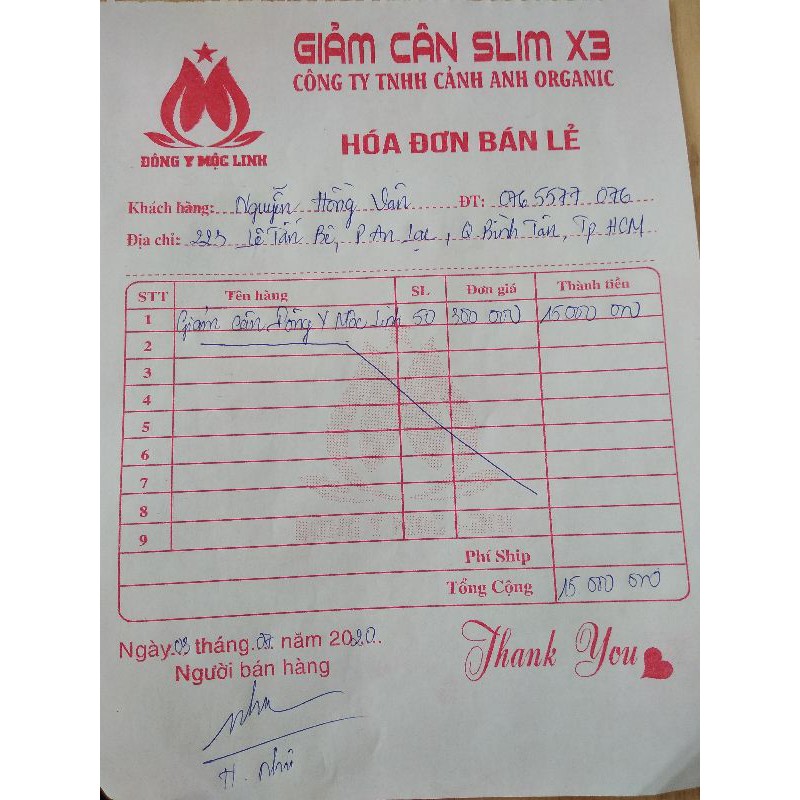 GIẢM CÂN SLIM X3
CÔNG TY TNHH CẢNH ANH ORGANIC
ĐÔNG Y MỘC LINH
HÓA ĐƠN BÁN LẺ
Khách hàng: Nguyễn Hồng Vân ĐT: 0765577 076
Địa chỉ: 223 Lê Tấn Bê, P. An Lạc, Q Bình Tân, Tp. HCM
STT Tên hàng SL Đơn giá Thành tiền
1 Giảm cân Đông Y Mộc Linh 50 300 000 15000 000
2
3
4
5
6
7
8
9
Phí Ship
Tổng Cộng 15 000 000
Ngày 03 tháng 07 năm 2020
Người bán hàng
Thank You
H. Như